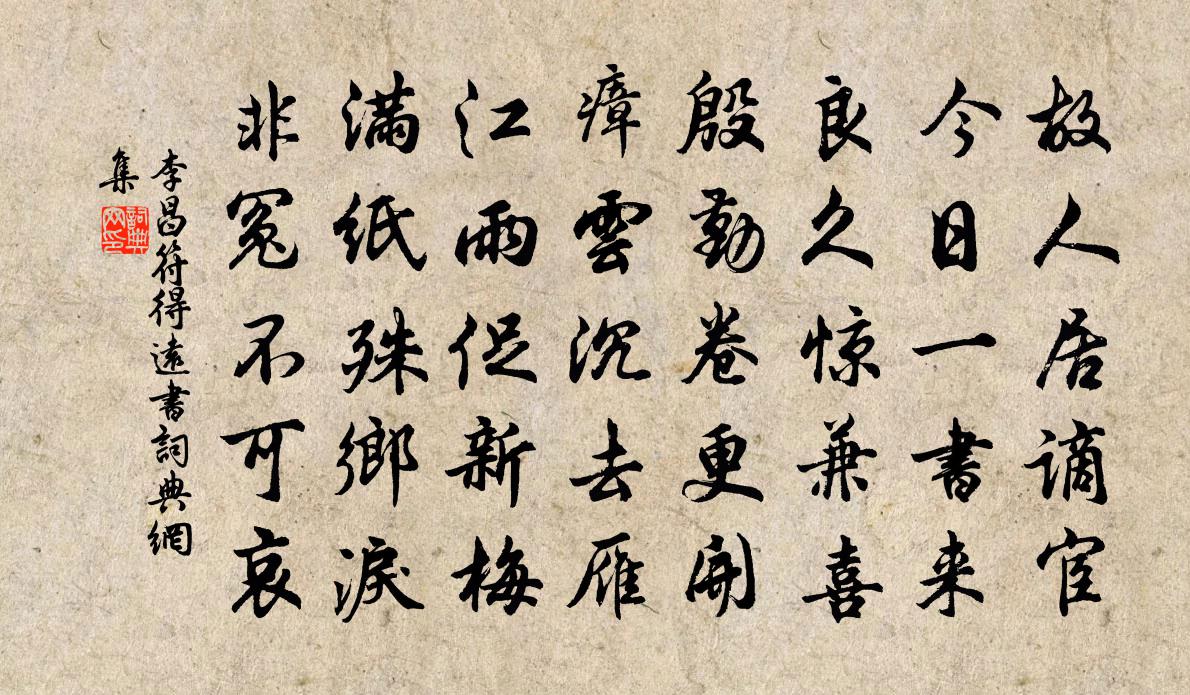 故人居谪宦
今日一書来
良久惊兼喜
殷勤卷更開
瘴雲沉去雁
江雨促新梅
满纸殊鄉淚
非冤不可哀
李昌符得遠書詞典網
集
詞典
网印